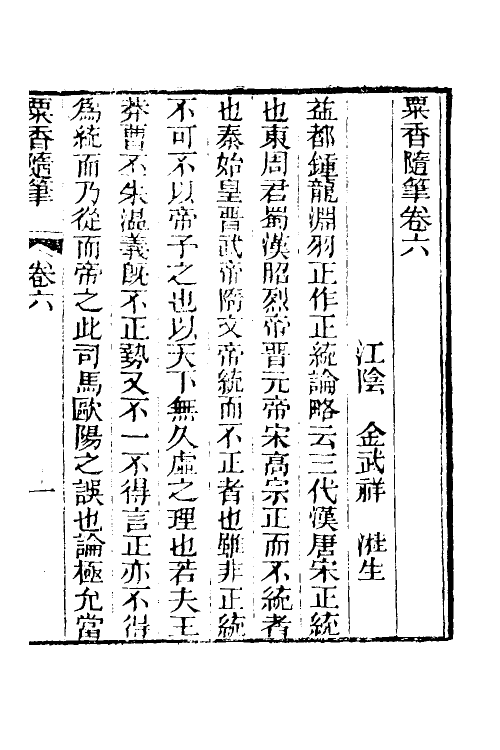 粟香隨筆卷六
江陰　金武祥　溎生
益都鍾龍淵羽正作正統論略云三代漢唐宋正統
也東周君蜀漢昭烈帝晋元帝宋高宗正而不統者
也秦始皇晋武帝隋文帝統而不正者也雖非正統
不可不以帝子之也以天下無久虛之理也若夫王
莽曹丕朱溫義旣不正勢又不一不得言正亦不得
爲統而乃從而帝之此司馬歐陽之誤也論極允當
粟香隨筆　卷六　一